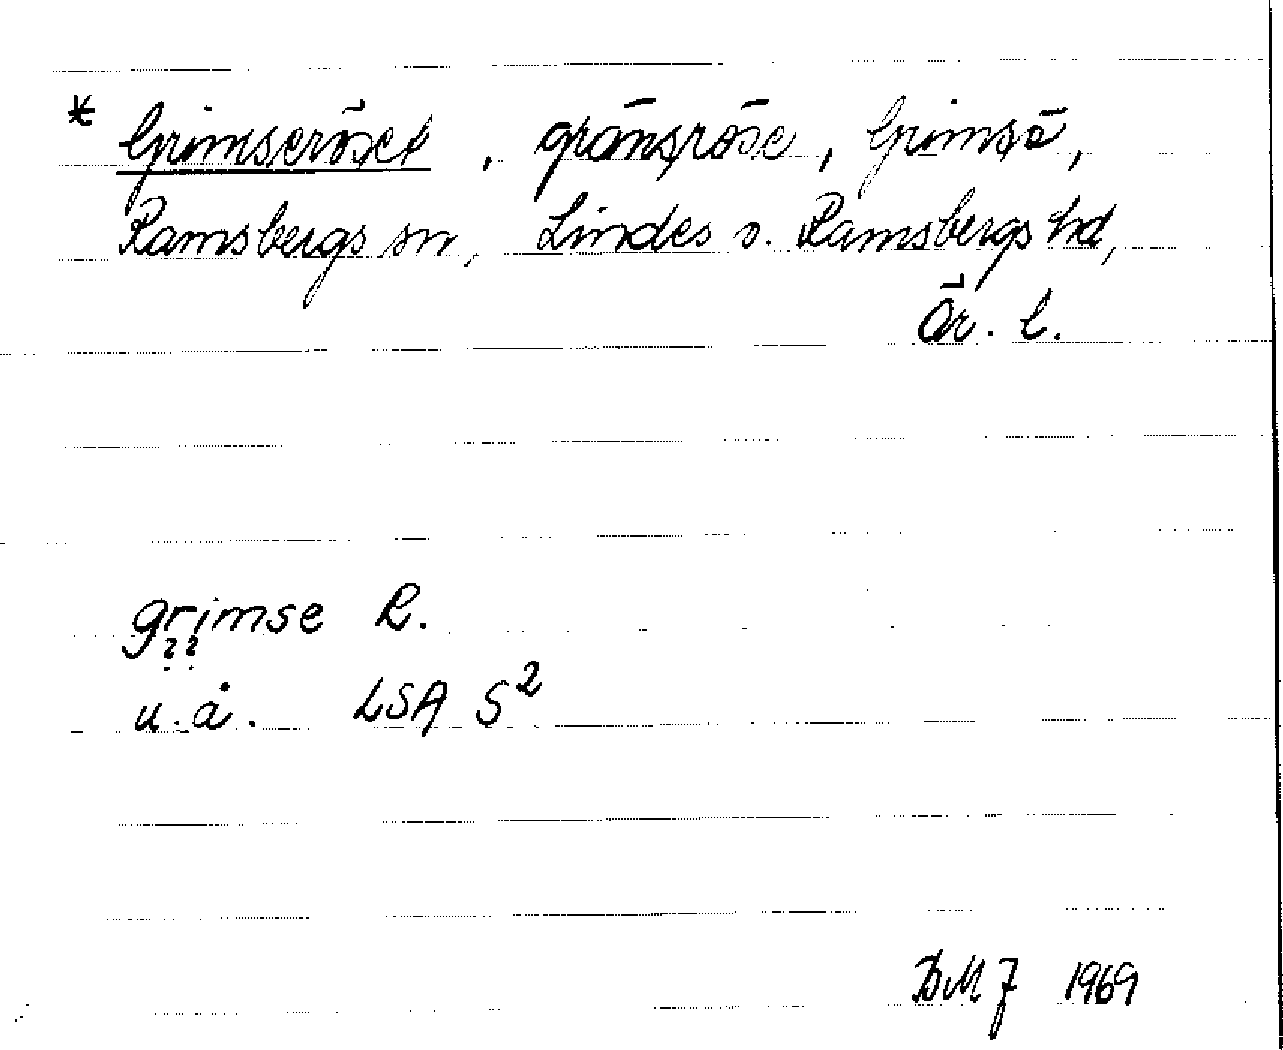 * Grimseröset, gränsröse, Grimsö,
Ramsbergs sn, Lindes o. Ramsbergs hd,
Ör. l.
grimse R.
??
u. å. LSA S²
DMJ 1969